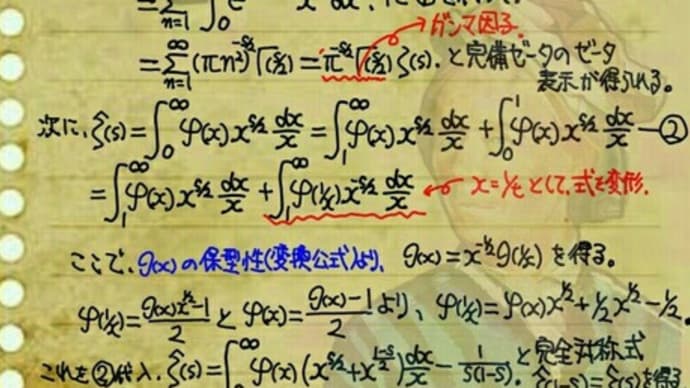 = Σ_{n=1}^∞ ∫_0^∞
ガンマ因子.
= Σ_{n=1}^∞ (πn²)^{-s/2} Γ(s/2) = π^{-s/2} Γ(s/2) ζ(s). と完備ゼータのゼータ
表示が得られる。
次に、ζ̂(s) = ∫_0^∞ φ(x) x^{s/2} dx/x = ∫_1^∞ φ(x) x^{s/2} dx/x + ∫_0^1 φ(x) x^{s/2} dx/x ―②
= ∫_1^∞ φ(x) x^{s/2} dx/x + ∫_1^∞ φ(1/x) x^{-s/2} dx/x ← x=1/t として、式を変形.
ここで、g(x)の保型性(変換公式)より、 g(x) = x^{-1/2} g(1/x) を得る。
φ(1/x) = (g(x) x^{1/2} - 1)/2 と φ(x) = (g(x) - 1)/2 より、 φ(1/x) = φ(x) x^{1/2} + 1/2 x^{1/2} - 1/2.
これを②代入、ζ̂(s) = ∫^∞ φ(x) (x^{s/2} + x^{(1-s)/2}) dx/x - 1/(s(1-s)). と完全対称式
を得る